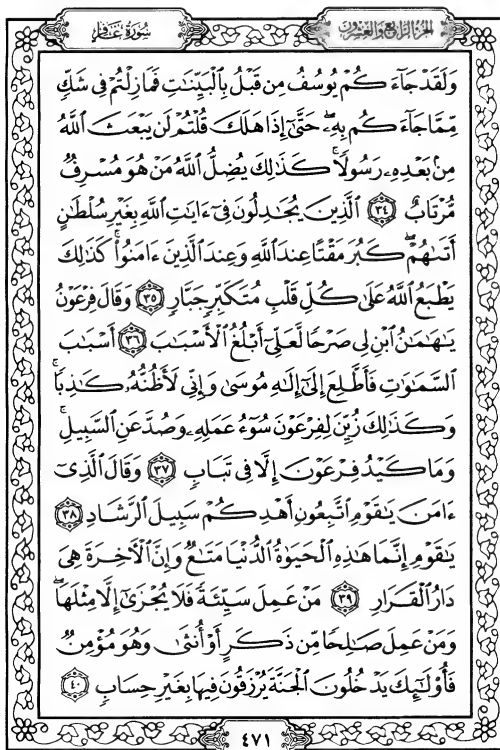 الجزء الرابع والعشرون
سورة غافر
وَلَقَدْ جَآءَكُمْ يُوسُفُ مِن قَبْلُ بِالْبَيِّنَٰتِ فَمَا زِلْتُمْ فِى شَكٍّ
مِّمَّا جَآءَكُم بِهِۦ حَتَّىٰٓ إِذَا هَلَكَ قُلْتُمْ لَن يَبْعَثَ اللَّهُ
مِنۢ بَعْدِهِۦ رَسُولًا ۚ كَذَٰلِكَ يُضِلُّ اللَّهُ مَنْ هُوَ مُسْرِفٌ
مُّرْتَابٌ ٣٤ الَّذِينَ يُجَٰدِلُونَ فِىٓ ءَايَٰتِ اللَّهِ بِغَيْرِ سُلْطَٰنٍ
أَتَىٰهُمْ ۖ كَبُرَ مَقْتًا عِندَ اللَّهِ وَعِندَ الَّذِينَ ءَامَنُوا۟ ۚ كَذَٰلِكَ
يَطْبَعُ اللَّهُ عَلَىٰ كُلِّ قَلْبِ مُتَكَبِّرٍ جَبَّارٍ ٣٥ وَقَالَ فِرْعَوْنُ
يَٰهَٰمَٰنُ ابْنِ لِى صَرْحًا لَّعَلِّىٓ أَبْلُغُ الْأَسْبَٰبَ ٣٦ أَسْبَٰبَ
السَّمَٰوَٰتِ فَأَطَّلِعَ إِلَىٰٓ إِلَٰهِ مُوسَىٰ وَإِنِّى لَأَظُنُّهُۥ كَٰذِبًا ۚ
وَكَذَٰلِكَ زُيِّنَ لِفِرْعَوْنَ سُوٓءُ عَمَلِهِۦ وَصُدَّ عَنِ السَّبِيلِ ۚ
وَمَا كَيْدُ فِرْعَوْنَ إِلَّا فِى تَبَابٍ ٣٧ وَقَالَ الَّذِىٓ
ءَامَنَ يَٰقَوْمِ اتَّبِعُونِ أَهْدِكُمْ سَبِيلَ الرَّشَادِ ٣٨
يَٰقَوْمِ إِنَّمَا هَٰذِهِ الْحَيَوٰةُ الدُّنْيَا مَتَٰعٌ وَإِنَّ الْءَاخِرَةَ هِىَ
دَارُ الْقَرَارِ ٣٩ مَنْ عَمِلَ سَيِّئَةً فَلَا يُجْزَىٰٓ إِلَّا مِثْلَهَا ۖ
وَمَنْ عَمِلَ صَٰلِحًا مِّن ذَكَرٍ أَوْ أُنثَىٰ وَهُوَ مُؤْمِنٌ
فَأُو۟لَٰٓئِكَ يَدْخُلُونَ الْجَنَّةَ يُرْزَقُونَ فِيهَا بِغَيْرِ حِسَابٍ ٤٠
٤٧١